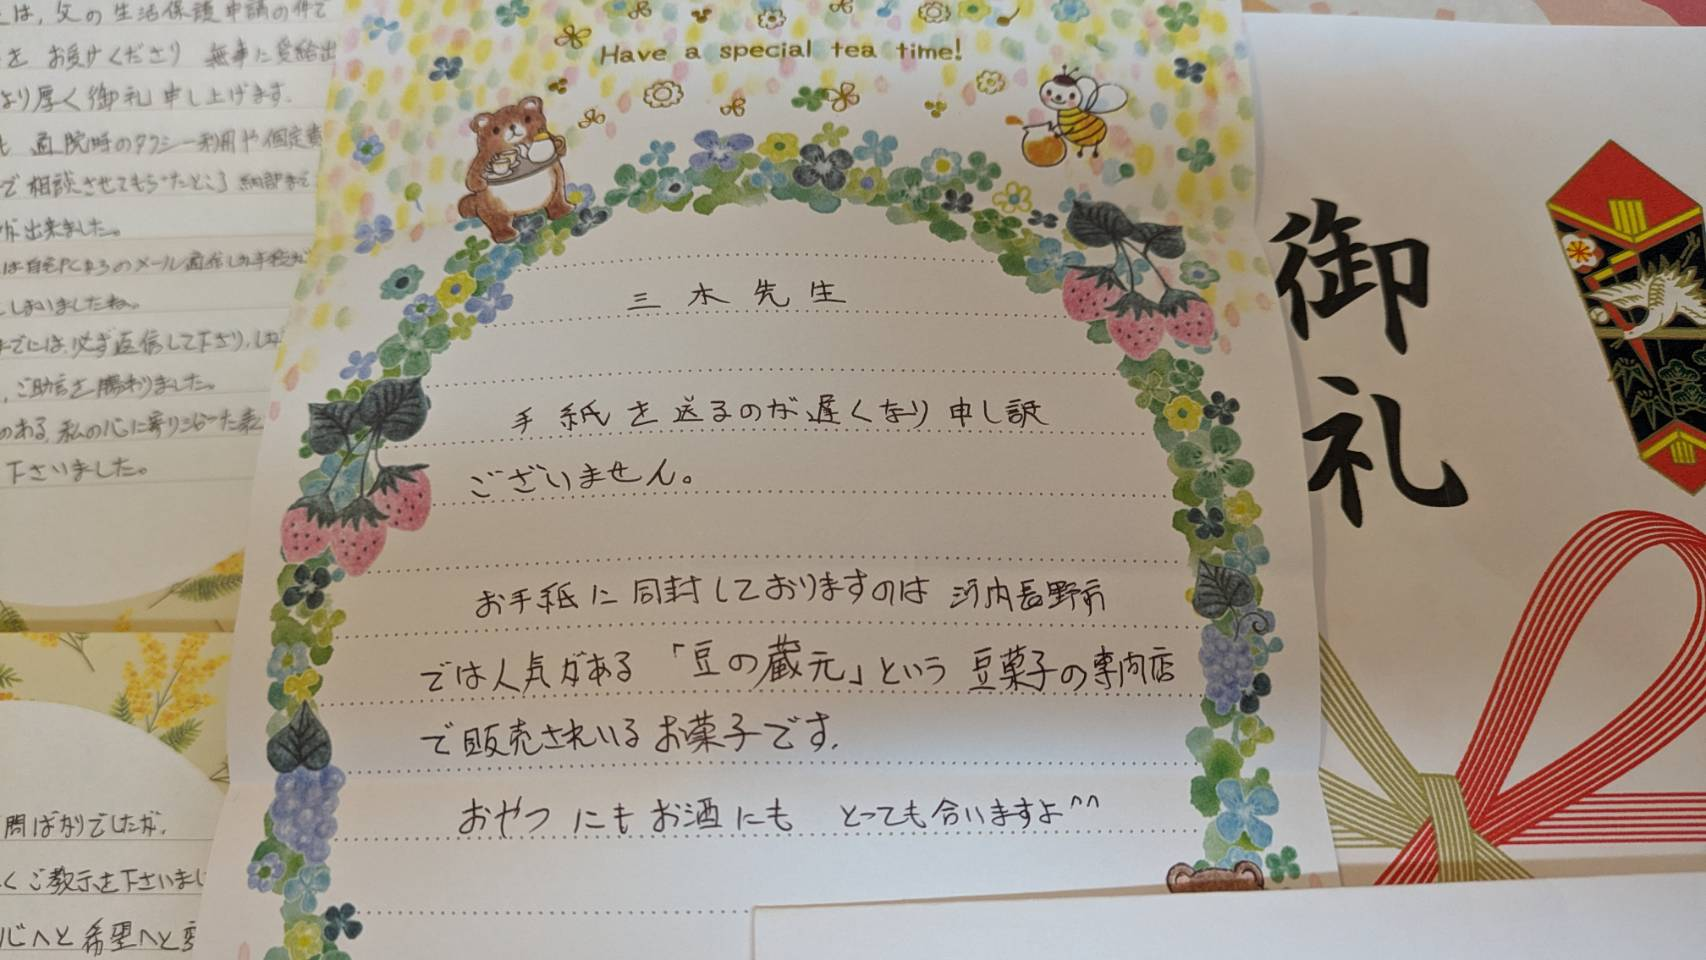 は、父の生活保護申請の件で
を お受けくださり 無事に受給出
より厚く御礼申し上げます。
も 通院時のタクシー利用や固定費
で相談させてもらったところ 細部まで
が出来ました。
は自宅PCからのメール返信しか手段が
しまいましたね。
までには、必ず返信して下さり、しか
、ご助言を賜わりました。
のある、私の心に寄り添った素
下さいました。
問ばかりでしたが、
くご教示を下さいまし
心へと希望へと変
Have a special tea time!
三木先生
手紙を送るのが遅くなり申し訳
ございません。
お手紙に同封しておりますのは 河内長野市
では人気がある「豆の蔵元」という 豆菓子の専門店
で販売されいるお菓子です.
おやつにもお酒にも とっても合いますよ^^
御礼